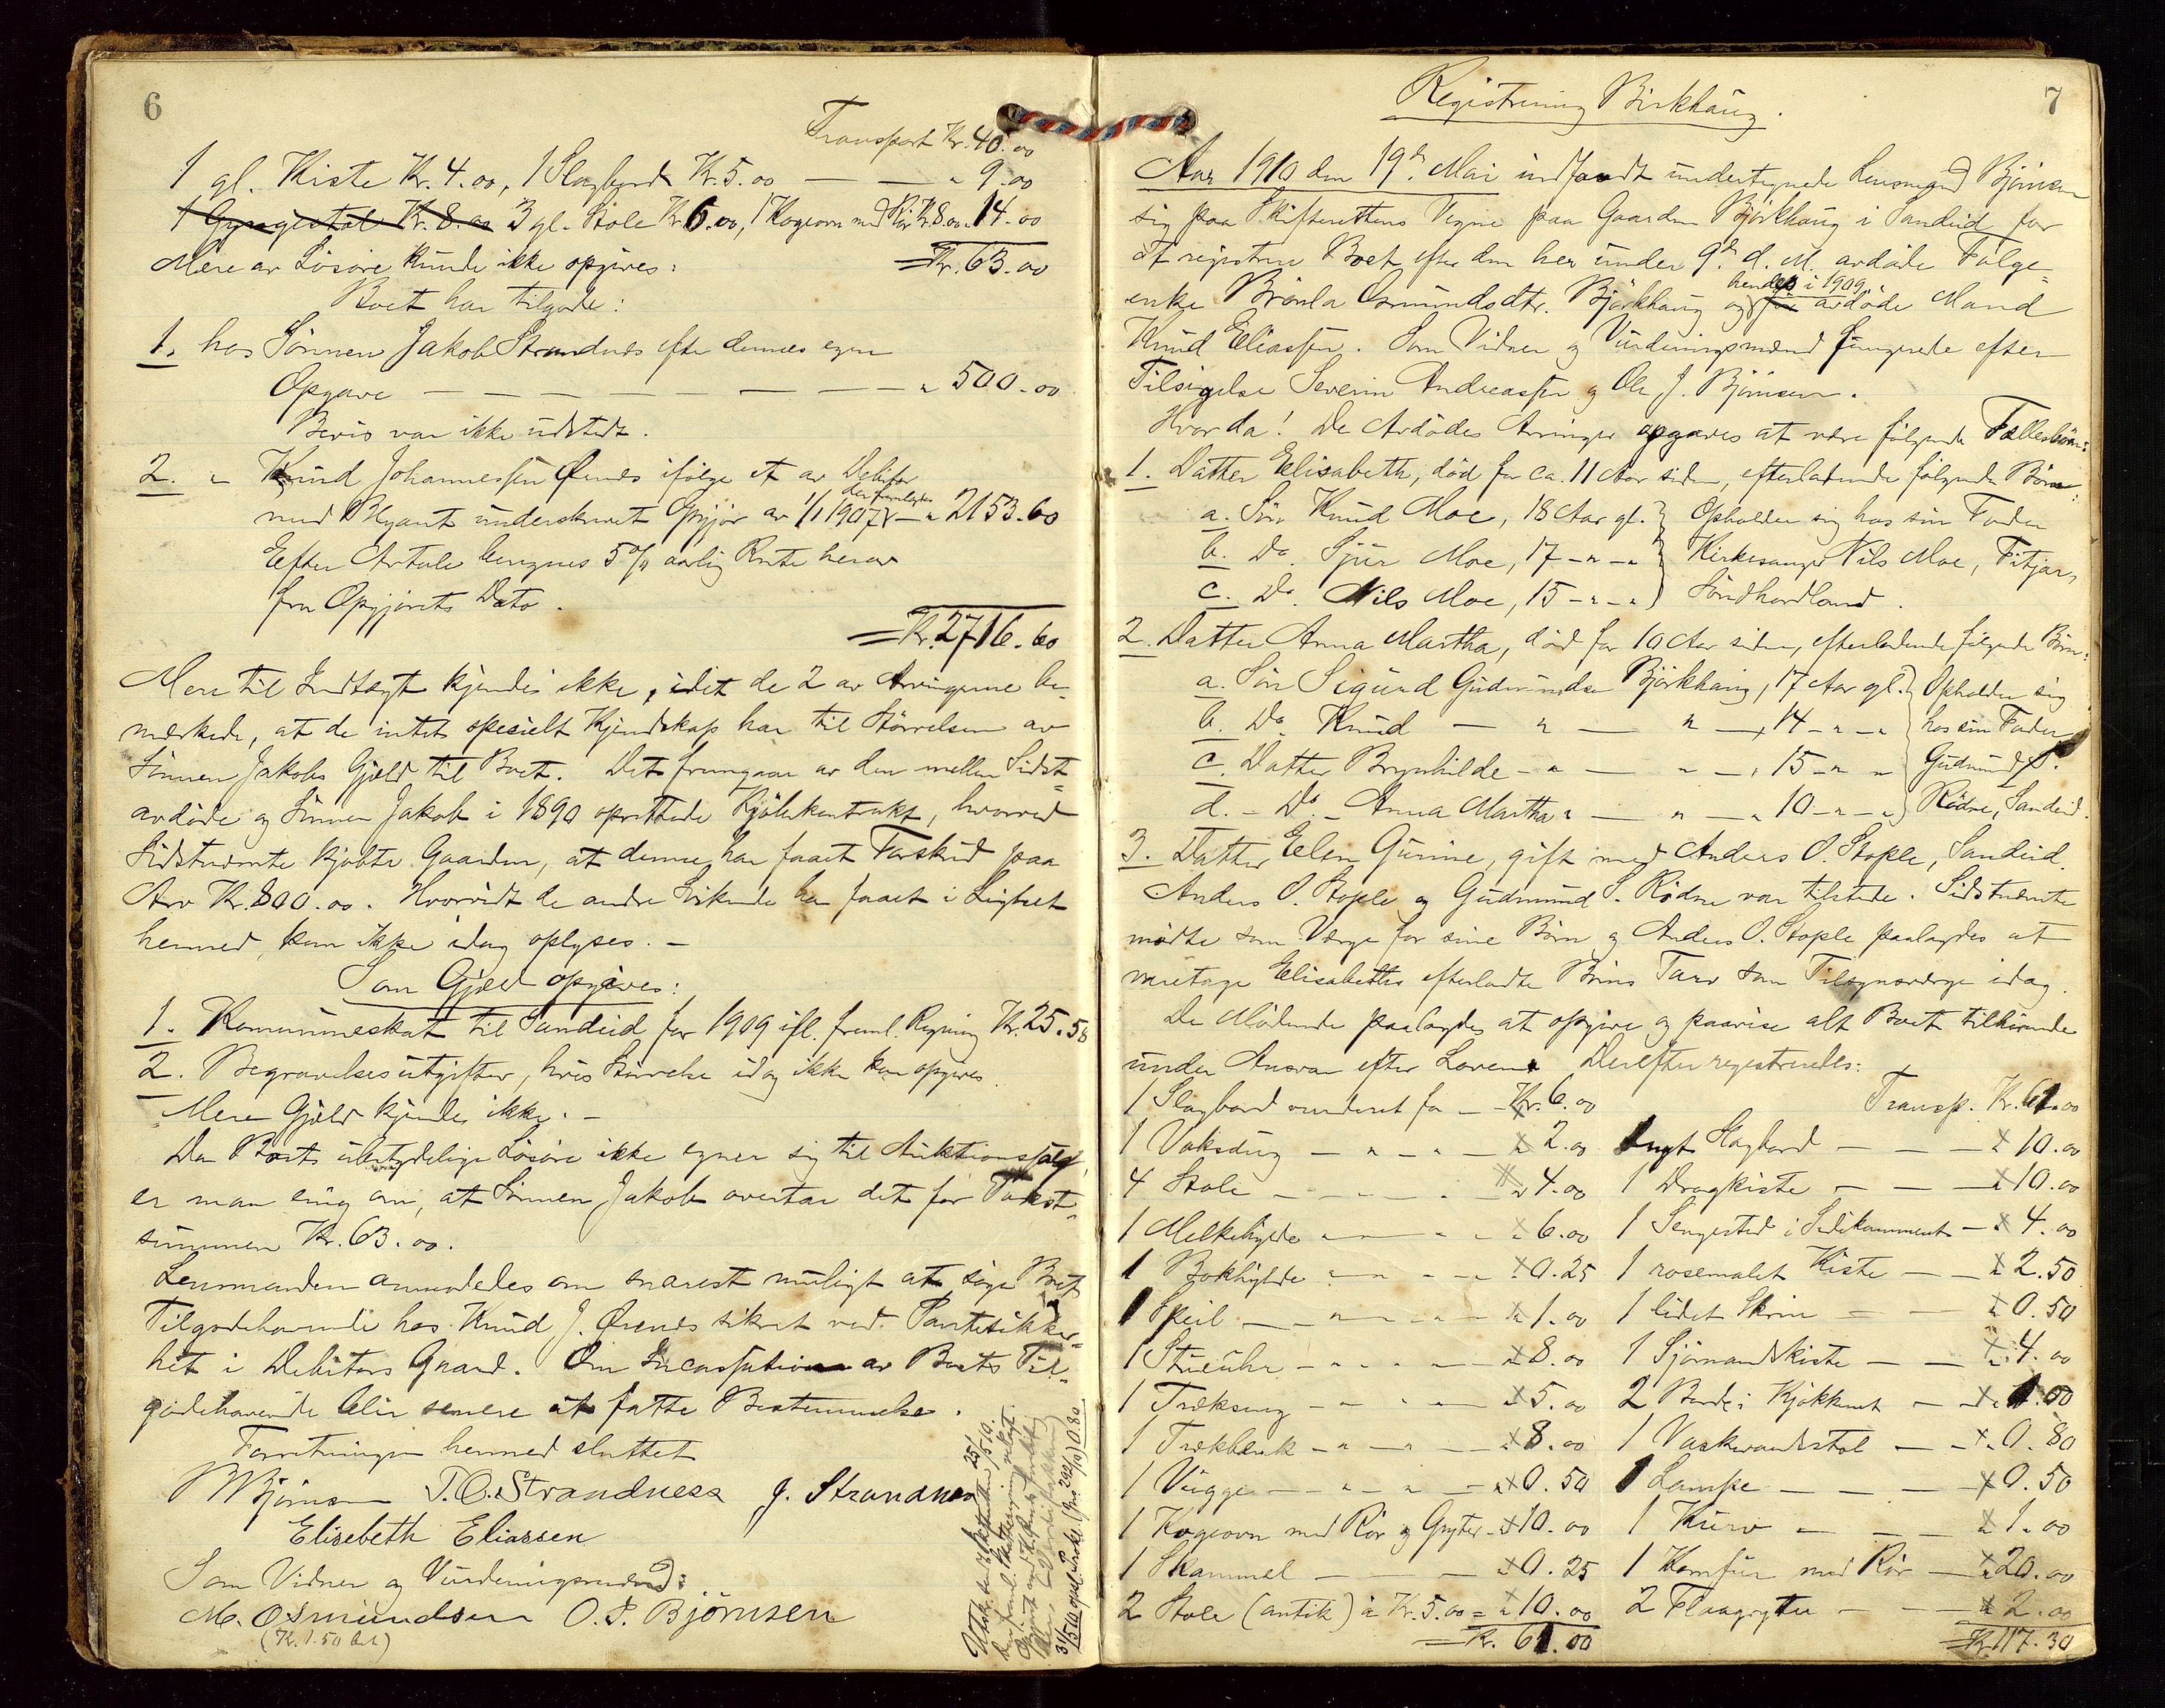 6
Transport Kr. 40.00
1 gl. Kiste Kr. 4.00, 1 Slagbord Kr. 5.00 — — " 9.00
1 Gyngestol Kr. 8.00 3 gl. Stole Kr. 6.00, 1 Kogeovn med Rör Kr. 8.00 " 14.00
Mere av Lösöre kunde ikke opgives: = Kr. 63.00
Boet har tilgode:
1. hos Sönnen Jakob Strandnes efter dennes egen
Opgave — — — — — — — — " 500.00
Bevis var ikke udstedt.
2. " Knud Johannessen Ørenes ifölge et av Debitor
med Blyant underskrevet Opgjör av 1/1 1907 der fremlagdes — " 2153.60
Efter Avtale beregnes 5 % aarlig Rente herav
fra Opgjörets Dato.
= Kr. 2716.60
Mere til Indtægt kjendes ikke, idet de 2 av Arvingerne be-
merkede, at de intet specielt Kjendskap har til Störrelsen av
Sönnen Jakobs Gjæld til Boet. Det fremgaar av den mellem Sidst=
avdöde og Sönnen Jakob i 1890 oprettede Kjöbekontrakt, hvorved
Sidstnævnte kjöbte Gaarden, at denne har faaet Forskud paa
Arv Kr. 800.00. Hvorvidt de andre Söskende har faaet i Lighet
hermed, kan ikke idag oplyses. —
Som Gjæld opgives:
1. Kommuneskat til Sandeid for 1909 ifl. freml. Regning Kr. 25.58
2. Begravelsesutgifter, hvis Störrelse idag ikke kan opgives.
Mere Gjæld kjendes ikke. —
Da Boets ubetydelige Lösöre ikke egner sig til Auktionssalg,
er man enig om, at Sönnen Jakob overtar det for Takst=
summen Kr. 63.00.
Lensmanden anmodedes om snarest muligt at söge Boets
Tilgodehavende hos Knud J. Ørenes sikret ved Pantesikker=
het i Debitors Gaard. Om Incassation av Boets Til=
godehavende blir senere at fatte Bestemmelse.
Forretningen hermed sluttet
Björnsen T. O. Strandness J. Strandnes
Elisebeth Eliassen
Som Vidner og Vurderingsmænd:
M. Osmundsen O. J. Björnsen
(Kr. 1.50 bet.)
7
Registrering Birkhaug.
Aar 1910 den 19de Mai indfandt undertegnede Lensmand Björnsen
sig paa Skifterettens Vegne paa Gaarden Björkhaug i Sandeid for
at registrere Boet efter den her under 9de d. M. avdöde Folge=
enke Brönla Osmundsdtr. Björkhaug og hendes i 1909 avdöde Mand
Knud Eliassen. Som Vidner og Vurderingsmænd fungerede efter
Tilsigelse Severin Andreassen og Ole J. Björnsen.
Hvorda! De Avdödes Arvinger opgaves at være fölgende Fællesbörn:
1. Datter Elisabeth, död for ca. 11 Aar siden, efterladende fölgende Börn:
a. Sön Knud Moe, 18 Aar gl. } Opholder sig hos sin Fader
b. Do. Sjur Moe, 17 - " - " } Kirkesanger Nils Moe, Fitjar,
c. Do. Nils Moe, 15 - " - " } Söndhordland.
2. Datter Anna Martha, död for 10 Aar siden, efterladende fölgende Börn:
a. Sön Sigurd Gudmundsen Björkhaug, 17 Aar gl. } Opholder sig
b. Do. Knud — " — " —, 14 - " - " } hos sin Fader
c. Datter Brynhilde - " — " —, 15 - " " } Gudmund S.
d. - Do. - Anna Martha " — " — " 10 - " - " } Rödne, Sandeid.
3. Datter Elen Gurine, gift med Anders O. Stople, Sandeid.
Anders O. Stople og Gudmund S. Rödne var tilstede. Sidstnævnte
mödte som Værge for sine Börn og Anders O. Stople paalagdes at
varetage Elisabeths efterladte Börns Tarv som Tilsynsværge idag.
De Mödende paalagdes at opgive og paavise alt Boet tilhörende
under Ansvar efter Loven. Derefter registreredes:
1 Slagbord vurderet for — Kr. 6.00
1 Voksdug — " — " — " 2.00
4 Stole — — — " 4.00
1 Melkehylde — — " 6.00
1 Bokhylde — — " 0.25
1 Speil — — " 1.00
1 Stueuhr — — " 8.00
1 Trækseng — — " 5.00
1 Trækbænk — — " 8.00
1 Vugge — — " 0.50
1 Kogeovn med Rör og Gryter " 10.00
1 Skammel — — " 0.25
2 Stole (antik) à Kr. 5.00 = " 10.00
= Kr. 61.00
Transp. Kr. 61.00
1 nyt Slagbord — — " 10.00
1 Dragkiste — — " 10.00
1 Sengested i Sidekammeret — " 4.00
1 rosemalet Kiste — — " 2.50
1 lidet Skrin — — " 0.50
1 Sjömandskiste — — " 4.00
2 Borde i Kjökkenet — " 1.00
1 Vaskevandsstol — — " 0.80
1 Lampe — — — " 0.50
1 Kurv — — — " 1.00
1 Komfur med Rör — " 20.00
2 Flaagryter — — " 2.00
= Kr. 117.30